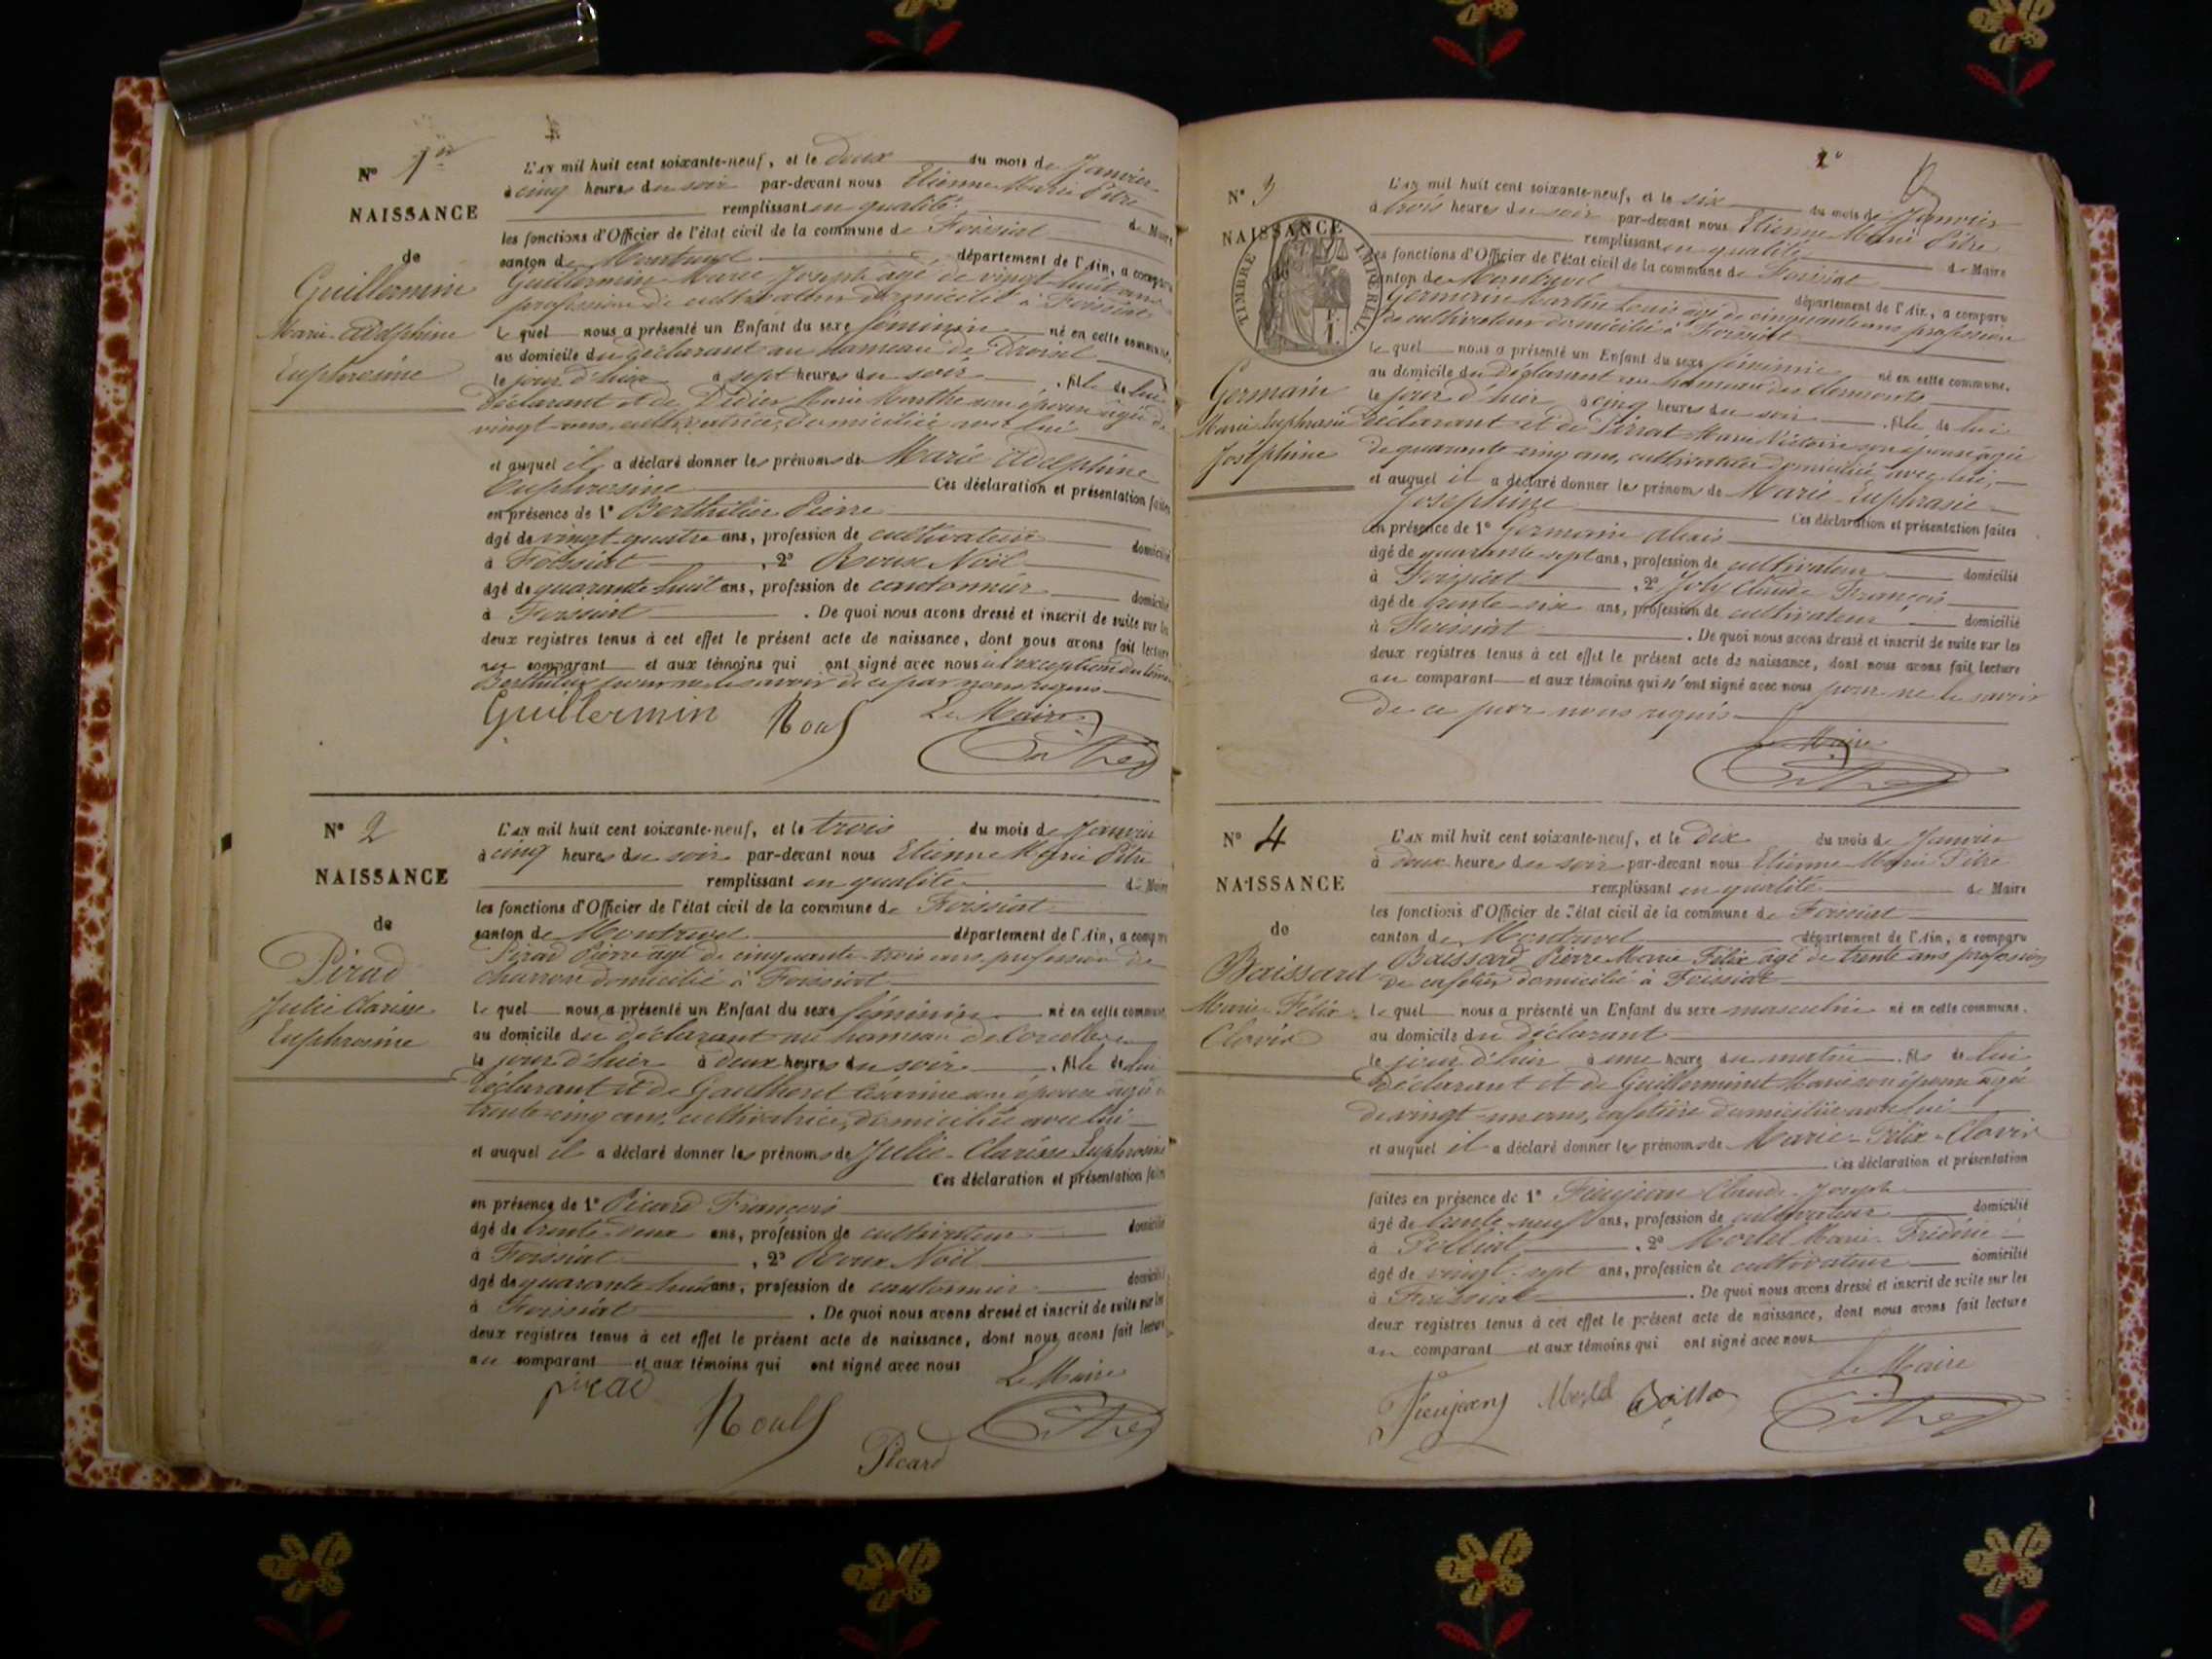 Nº 1er
NAISSANCE
de
Guillermin
Marie Adelphine
Euphrosine
L'AN mil huit cent soixante-neuf, et le deux du mois de Janvier
à cinq heures du soir par-devant nous Etienne Marie Pitre
remplissant en qualité de Maire
les fonctions d'Officier de l'état civil de la commune de Foissiat
canton de Montrevel département de l'Ain, a comparu
Guillermin Marie Joseph âgé de vingt huit ans
profession de cultivateur domicilié à Foissiat
le quel nous a présenté un Enfant du sexe féminin né en cette commune,
au domicile du déclarant au hameau de
le jour d'hier à sept heures du soir fille de lui
déclarant et de Didier Marie Marthe son épouse âgée de
vingt ans, cultivatrice, domiciliée avec lui
et auquel il a déclaré donner les prénoms de Marie Adelphine
Euphrosine Ces déclaration et présentation faites
en présence de 1º Berthilier Pierre
âgé de vingt-quatre ans, profession de cultivateur domicilié
à Foissiat , 2º Roux Noël
âgé de quarante huit ans, profession de cantonnier domicilié
à Foissiat . De quoi nous avons dressé et inscrit de suite sur les
deux registres tenus à cet effet le présent acte de naissance, dont nous avons fait lecture
au comparant et aux témoins qui ont signé avec nous à l'exception du témoin
Berthilier pour ne le savoir de ce par nous requis
Guillermin Roux Le Maire
Pitre
Nº 2
NAISSANCE
de
Pirad
Julie Clarisse
Euphrosine
L'AN mil huit cent soixante-neuf, et le trois du mois de Janvier
à cinq heures du soir par-devant nous Etienne Marie Pitre
remplissant en qualité de Maire
les fonctions d'Officier de l'état civil de la commune de Foissiat
canton de Montrevel département de l'Ain, a comparu
Pirad Pierre âgé de cinquante-trois ans profession de
charron domicilié à Foissiat
le quel nous a présenté un Enfant du sexe féminin né en cette commune,
au domicile du déclarant au hameau de Corcelles
le jour d'hier à deux heures du soir . fille de lui
déclarant et de Césarine son épouse âgée de
trente-cinq ans, cultivatrice, domiciliée avec lui
et auquel il a déclaré donner les prénoms de Julie-Clarisse Euphrosine
Ces déclaration et présentation faites
en présence de 1º Picard François
âgé de trente deux ans, profession de cultivateur domicilié
à Foissiat , 2º Roux Noël
âgé de quarante huit ans, profession de cantonnier domicilié
à Foissiat . De quoi nous avons dressé et inscrit de suite sur les
deux registres tenus à cet effet le présent acte de naissance, dont nous avons fait lecture
au comparant et aux témoins qui ont signé avec nous
Le Maire
pirad Roux Pitre
Picard
2º
Nº 3
NAISSANCE
TIMBRE IMPÉRIAL
Germain
Marie Euphrasie
Joséphine
L'AN mil huit cent soixante-neuf, et le six du mois de Janvier
à trois heures du soir par-devant nous Etienne Marie Pitre
remplissant en qualité de Maire
les fonctions d'Officier de l'état civil de la commune de Foissiat
canton de Montrevel département de l'Ain, a comparu
Germain Martin Louis âgé de cinquante ans profession
de cultivateur domicilié à Foissiat
le quel nous a présenté un Enfant du sexe féminin né en cette commune,
au domicile du Déclarant au hameau des Clermonts
le jour d'hier à cinq heures du soir . fille de lui
déclarant et de Perrat Marie Victoire son épouse âgée
de quarante cinq ans, cultivatrice domiciliée avec lui,
et auquel il a déclaré donner les prénoms de Marie-Euphrasie
Joséphine Ces déclaration et présentation faites
en présence de 1º Germain Alexis
âgé de quarante sept ans, profession de cultivateur domicilié
à Foissiat , 2º Joly Claude François
âgé de trente six ans, profession de cultivateur domicilié
à Foissiat . De quoi nous avons dressé et inscrit de suite sur les
deux registres tenus à cet effet le présent acte de naissance, dont nous avons fait lecture
au comparant et aux témoins qui n'ont signé avec nous pour ne le savoir
de ce par nous requis
Le Maire
Pitre
Nº 4
NAISSANCE
de
Baissard
Marie-Félix
Clovis
L'AN mil huit cent soixante-neuf, et le dix du mois de Janvier
à deux heures du soir par-devant nous Etienne Marie Pitre
remplissant en qualité de Maire
les fonctions d'Officier de l'état civil de la commune de Foissiat
canton de Montrevel département de l'Ain, a comparu
Baissard Pierre Marie Félix âgé de trente ans profession
de cafetier domicilié à Foissiat
le quel nous a présenté un Enfant du sexe masculin né en cette commune,
au domicile du déclarant
le jour d'hier à une heure du matin . fils de lui
déclarant et de Guillerminet Marie son épouse âgée
de vingt-un ans, cafetière domiciliée avec lui
et auquel il a déclaré donner les prénoms de Marie-Félix-Clovis
Ces déclaration et présentation
faites en présence de 1º Fieujean Claude-Joseph
âgé de trente neuf ans, profession de cultivateur domicilié
à Polliat , 2º Morlel Marie-Frédéric
âgé de vingt-sept ans, profession de cultivateur domicilié
à Foissiat . De quoi nous avons dressé et inscrit de suite sur les
deux registres tenus à cet effet le présent acte de naissance, dont nous avons fait lecture
au comparant et aux témoins qui ont signé avec nous
Le Maire
Fieujean Morlel Pitre